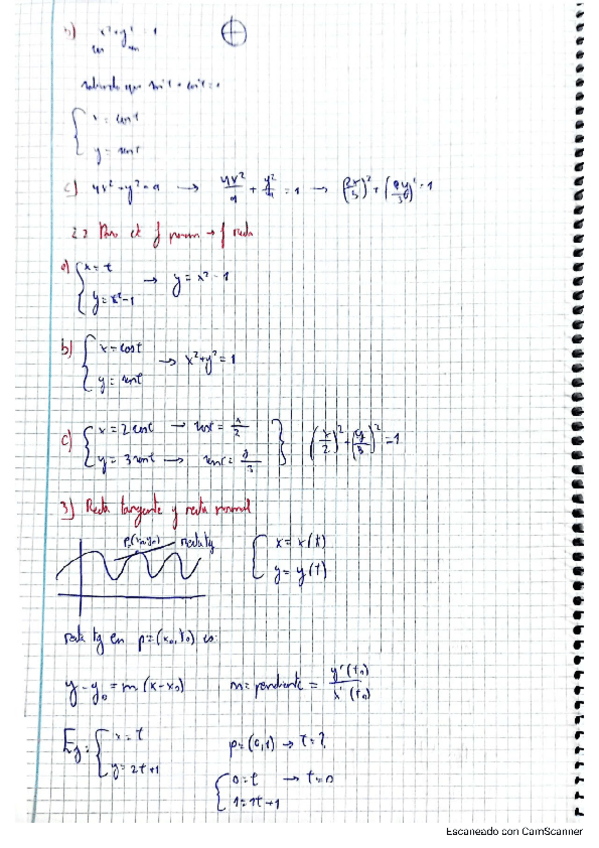 b) x² + y² = 1
cos sen
sabiendo que sen²t + cos²t = 1
{ x = cos t
y = sen t
c) 4x² + y² = 9 → 4x²/9 + y²/9 = 1 → (2x/3)² + (y/3)² = 1
2.2 Para et f param → f
a) { x = t
y = x² - 1 → y = x² - 1
b) { x = cos t
y = sen t → x² + y² = 1
c) { x = 2 cos t → cos t = x/2
y = 3 sen t → sen t = y/3 } (x/2)² + (y/3)² = 1
3) Recta tangente y recta normal
P(x₀, y₀) recta tg
{ x = x(t)
y = y(t)
recta tg en p = (x₀, y₀) es:
y - y₀ = m (x - x₀) m = pendiente = y'(t₀) / x'(t₀)
Ej: { x = t
y = 2t + 1
p = (0, 1) → t = ?
{ 0 = t → t = 0
1 = 2t + 1
Escaneado con CamScanner